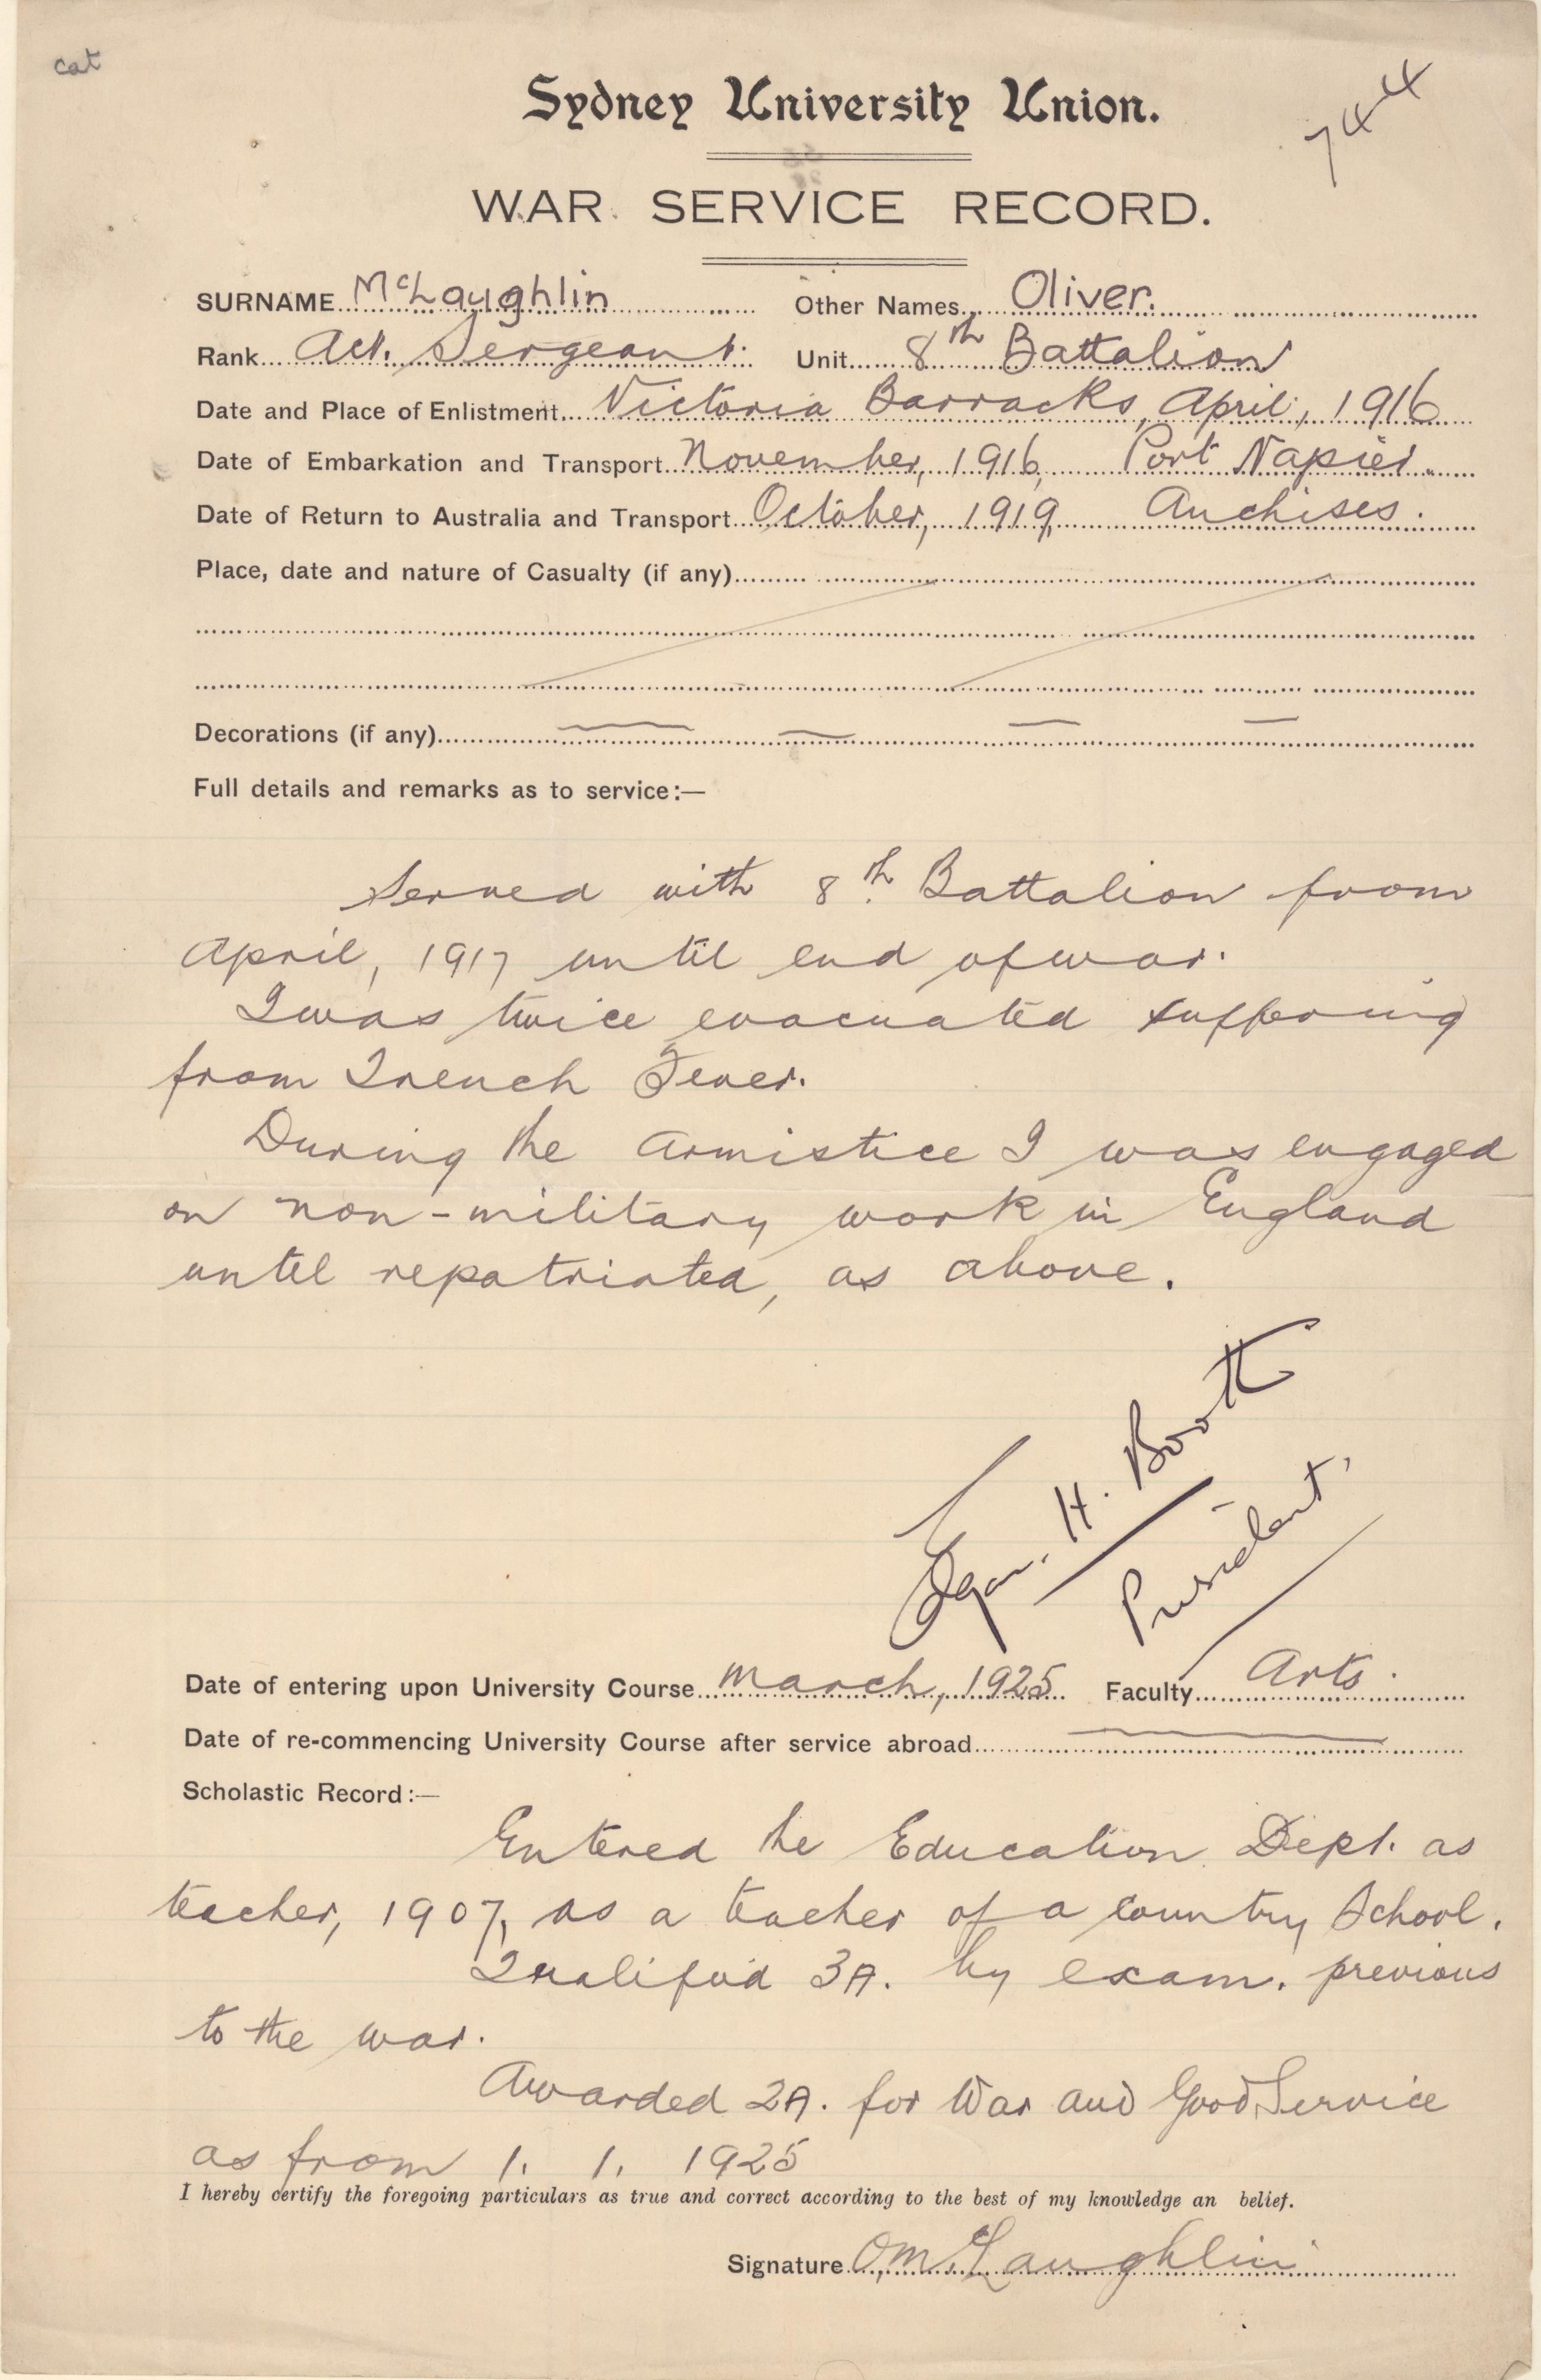 cat
Sydney University Union.
744
WAR SERVICE RECORD.
SURNAME McLaughlin Other Names Oliver.
Rank Act. Sergeant. Unit 8th Battalion
Date and Place of Enlistment Victoria Barracks, April, 1916
Date of Embarkation and Transport November, 1916, Port Napier.
Date of Return to Australia and Transport October, 1919, Anchises.
Place, date and nature of Casualty (if any)
Decorations (if any)
Full details and remarks as to service:—
Served with 8th Battalion from
April, 1917 until end of war.
I was twice evacuated suffering
from Trench Fever.
During the Armistice I was engaged
on non-military work in England
until repatriated, as above.
Edgar. H. Booth
President.
Date of entering upon University Course March, 1925 Faculty Arts.
Date of re-commencing University Course after service abroad
Scholastic Record:—
Entered the Education Dept. as
teacher, 1907, as a teacher of a country School.
Qualified 3A. by exam. previous
to the war.
Awarded 2A. for War and Good Service
as from 1. 1. 1925
I hereby certify the foregoing particulars as true and correct according to the best of my knowledge an belief.
Signature O, McLaughlin